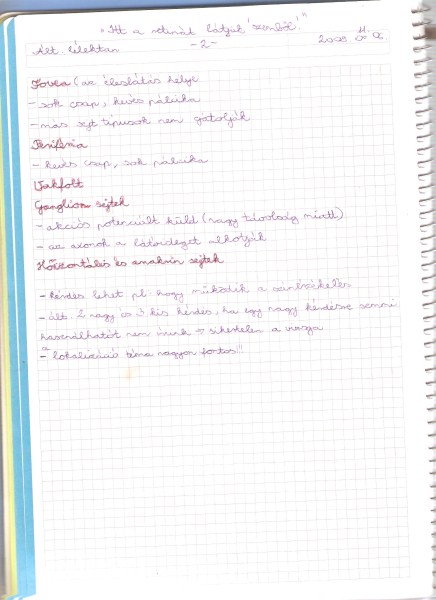 "Itt a retinát látjuk szemből."
Ált. lélektan -2- 2008. 11. 05.
Fovea (az éleslátás helye
- sok csap, kevés pálcika
- más sejt típusok nem gátolják
Periféria
- kevés csap, sok pálcika
Vakfolt
Ganglion sejtek
- akciós potenciált küld (nagy távolság miatt)
- az axonok a látóideget alkotják
Horizontális és amakrin sejtek
- kérdés lehet pl: hogy működik a színérzékelés
- ált. 2 nagy és 3 kis kérdés, ha egy nagy kérdésre semmi
használhatót nem írunk → sikertelen a vizsga
- a lokalizációs téma nagyon fontos!!